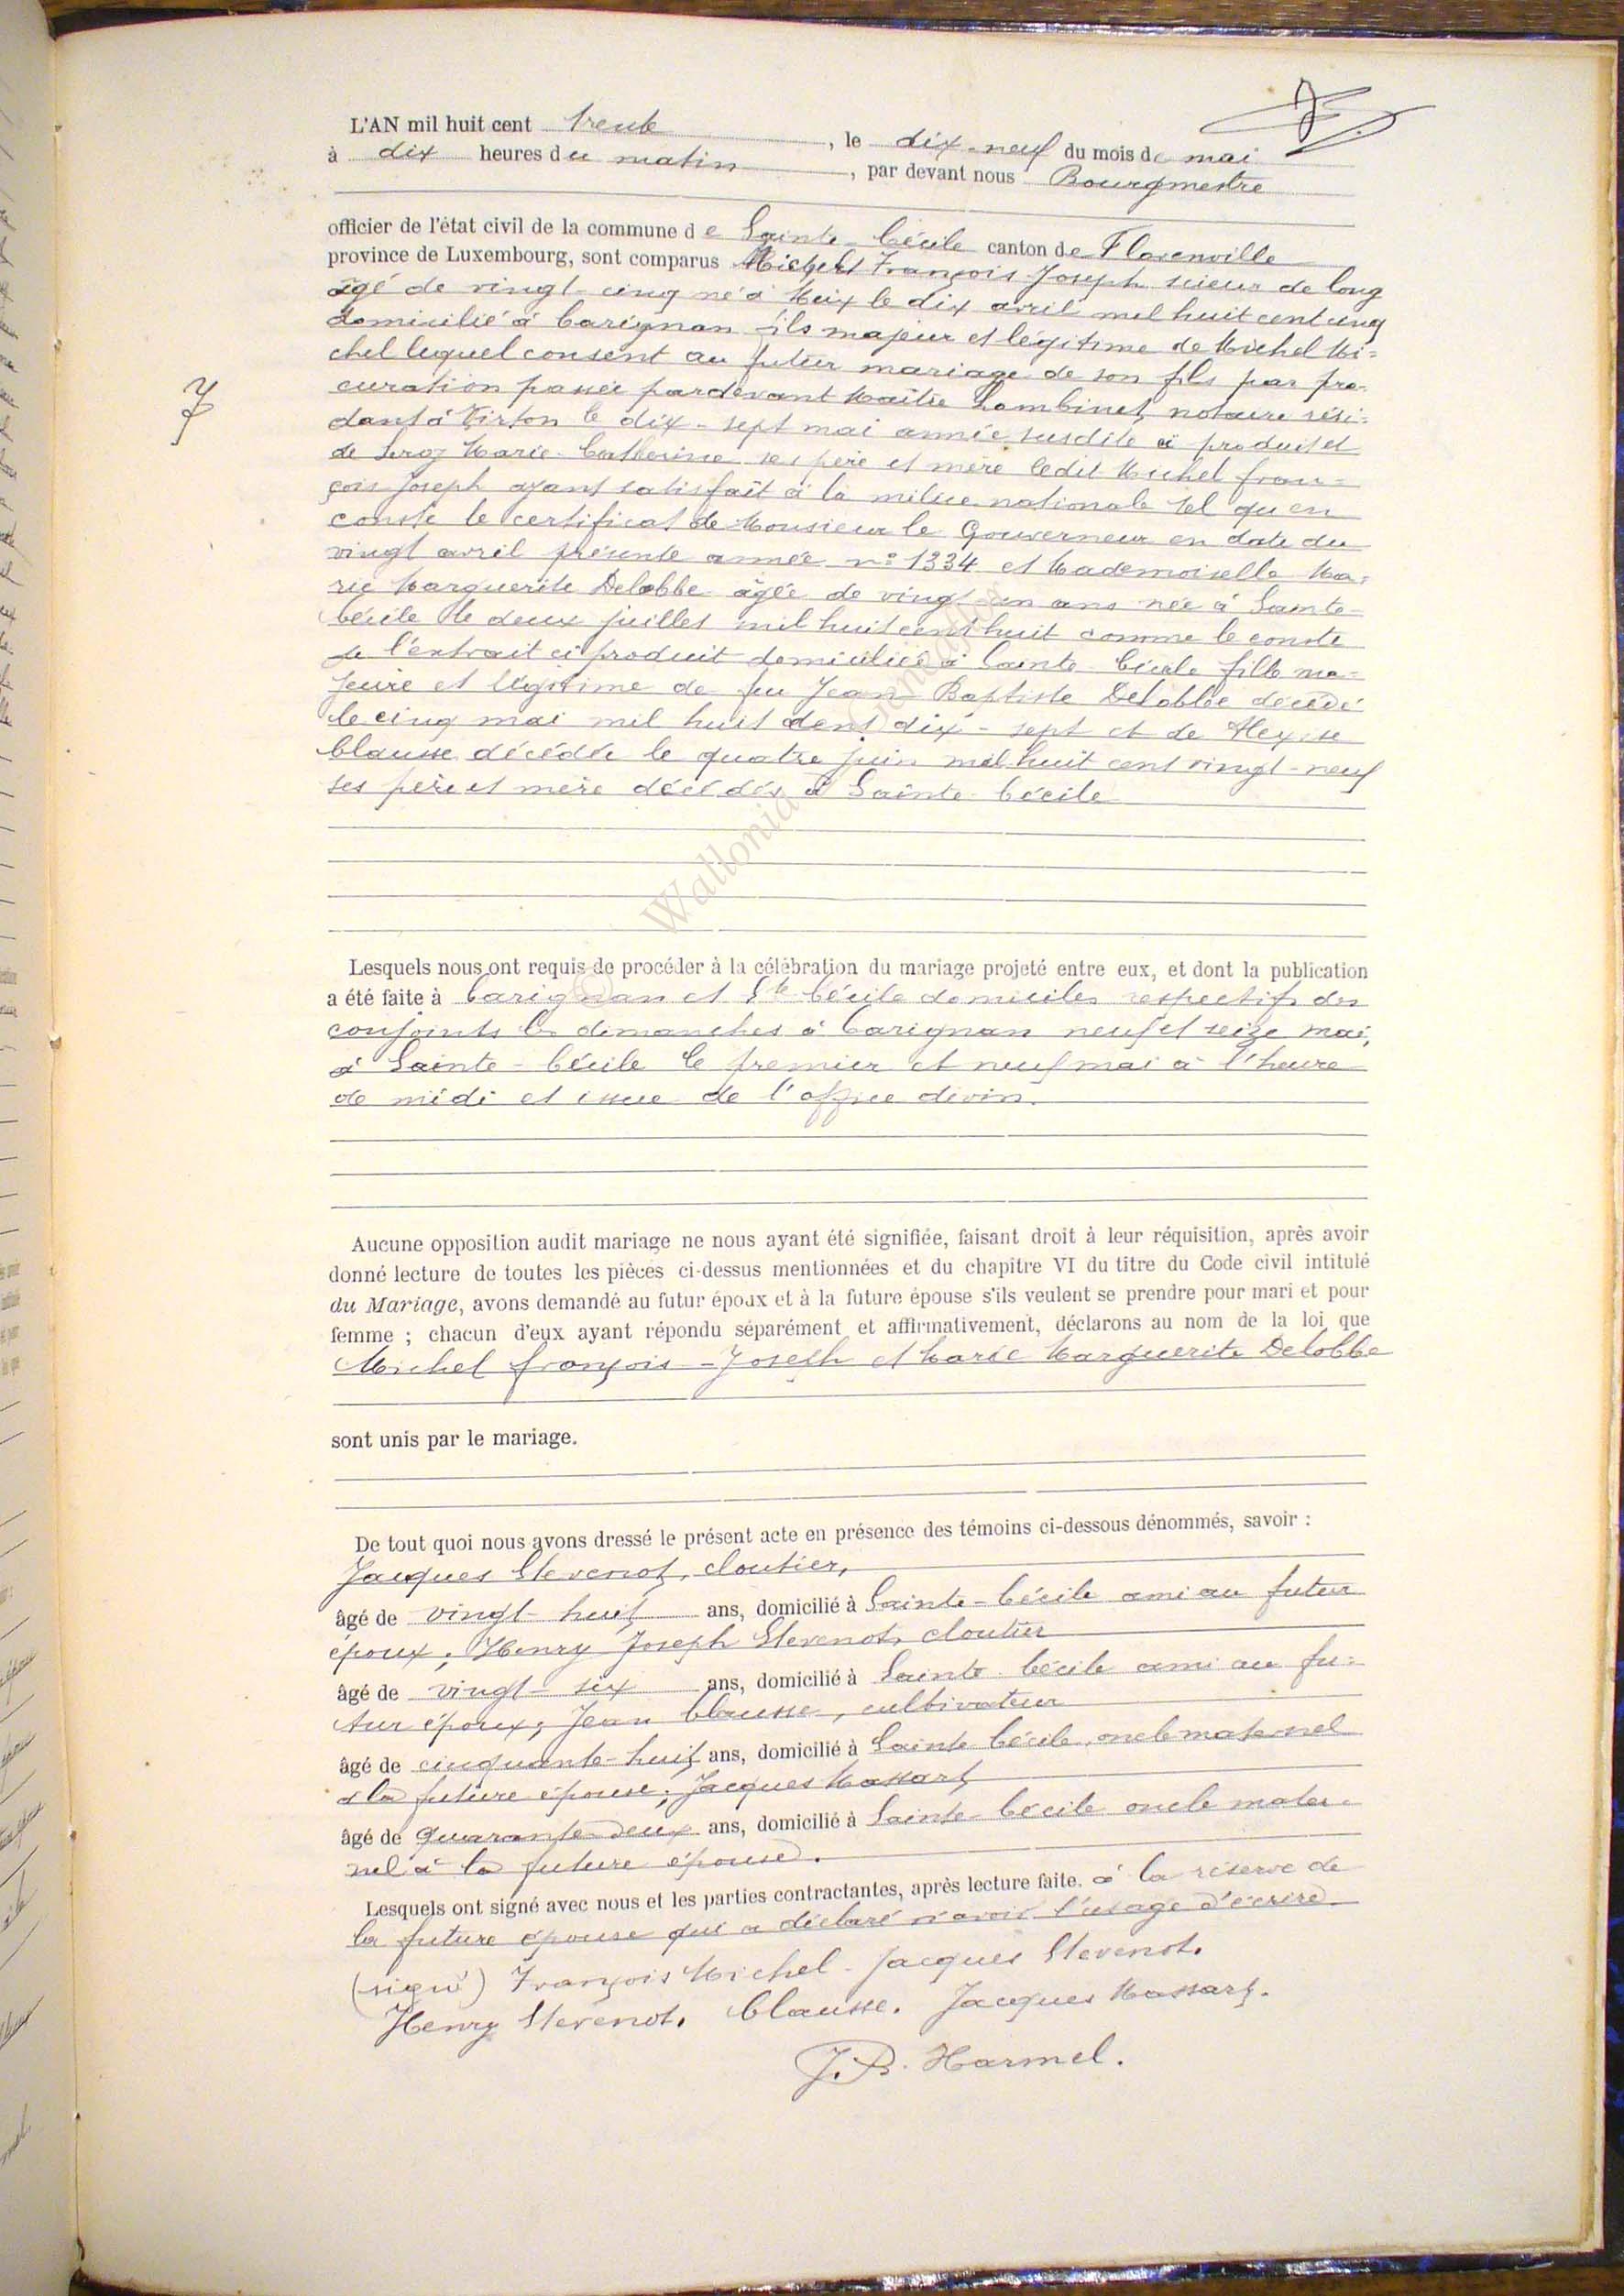 L'AN mil huit cent trente, le dix-neuf du mois de mai
à dix heures du matin, par devant nous Bourgmestre
officier de l'état civil de la commune de Sainte-Cécile canton de Florenville
province de Luxembourg, sont comparus Michel François-Joseph scieur de long
âgé de vingt-cinq né à Meix le dix avril mil huit cent cinq
domicilié à Carignan fils majeur et légitime de Michel Mi=
chel lequel consent au futur mariage de son fils par pro-
curation passée pardevant Maître Lambinet notaire rési=
dant à Virton le dix-sept mai année susdite ci produit et
de Marie-Catherine ses père et mère ledit Michel fran=
çois Joseph ayant satisfait à la milice nationale tel qu'en
conste le certificat de Monsieur le Gouverneur en date du
vingt avril présente année n° 1334 et Mademoiselle Ma=
rie Marguerite Delobbe âgée de vingt-un ans née à Sainte-
Cécile le deux juillet mil huit cent huit comme le conste
de l'extrait ci produit domiciliée à Sainte-Cécile fille ma=
jeure et légitime de feu Jean Baptiste Delobbe décédé
le cinq mai mil huit cent dix-sept et de Alexise
Clausse décédée le quatre juin mil huit cent vingt-neuf
ses père et mère décédés à Sainte-Cécile
7
© Wallonia Genealogie
Lesquels nous ont requis de procéder à la célébration du mariage projeté entre eux, et dont la publication
a été faite à Carignan et Ste Cécile domiciles respectifs des
conjoints les dimanches à Carignan neuf et seize mai,
à Sainte-Cécile le premier et neuf mai à l'heure
de midi et issue de l'office divin.
Aucune opposition audit mariage ne nous ayant été signifiée, faisant droit à leur réquisition, après avoir
donné lecture de toutes les pièces ci-dessus mentionnées et du chapitre VI du titre du Code civil intitulé
du Mariage, avons demandé au futur époux et à la future épouse s'ils veulent se prendre pour mari et pour
femme ; chacun d'eux ayant répondu séparément et affirmativement, déclarons au nom de la loi que
Michel françois-Joseph et Marie Marguerite Delobbe
sont unis par le mariage.
De tout quoi nous avons dressé le présent acte en présence des témoins ci-dessous dénommés, savoir :
Jacques Stevenot, cloutier,
âgé de vingt-huit ans, domicilié à Sainte-Cécile ami au futur
époux ; Henry Joseph Stevenot, cloutier
âgé de vingt-six ans, domicilié à Sainte-Cécile ami au fu=
tur époux ; Jean Clausse, cultivateur
âgé de cinquante-huit ans, domicilié à Sainte-Cécile, oncle maternel
à la future épouse ; Jacques Massart
âgé de quarante-deux ans, domicilié à Sainte-Cécile oncle mater-
nel à la future épouse.
Lesquels ont signé avec nous et les parties contractantes, après lecture faite, à la réserve de
la future épouse qui a déclaré n'avoir l'usage d'écrire
(signé) François Michel - Jacques Stevenot.
Henry Stevenot. Clausse. Jacques Massart.
J. B. Harmel.